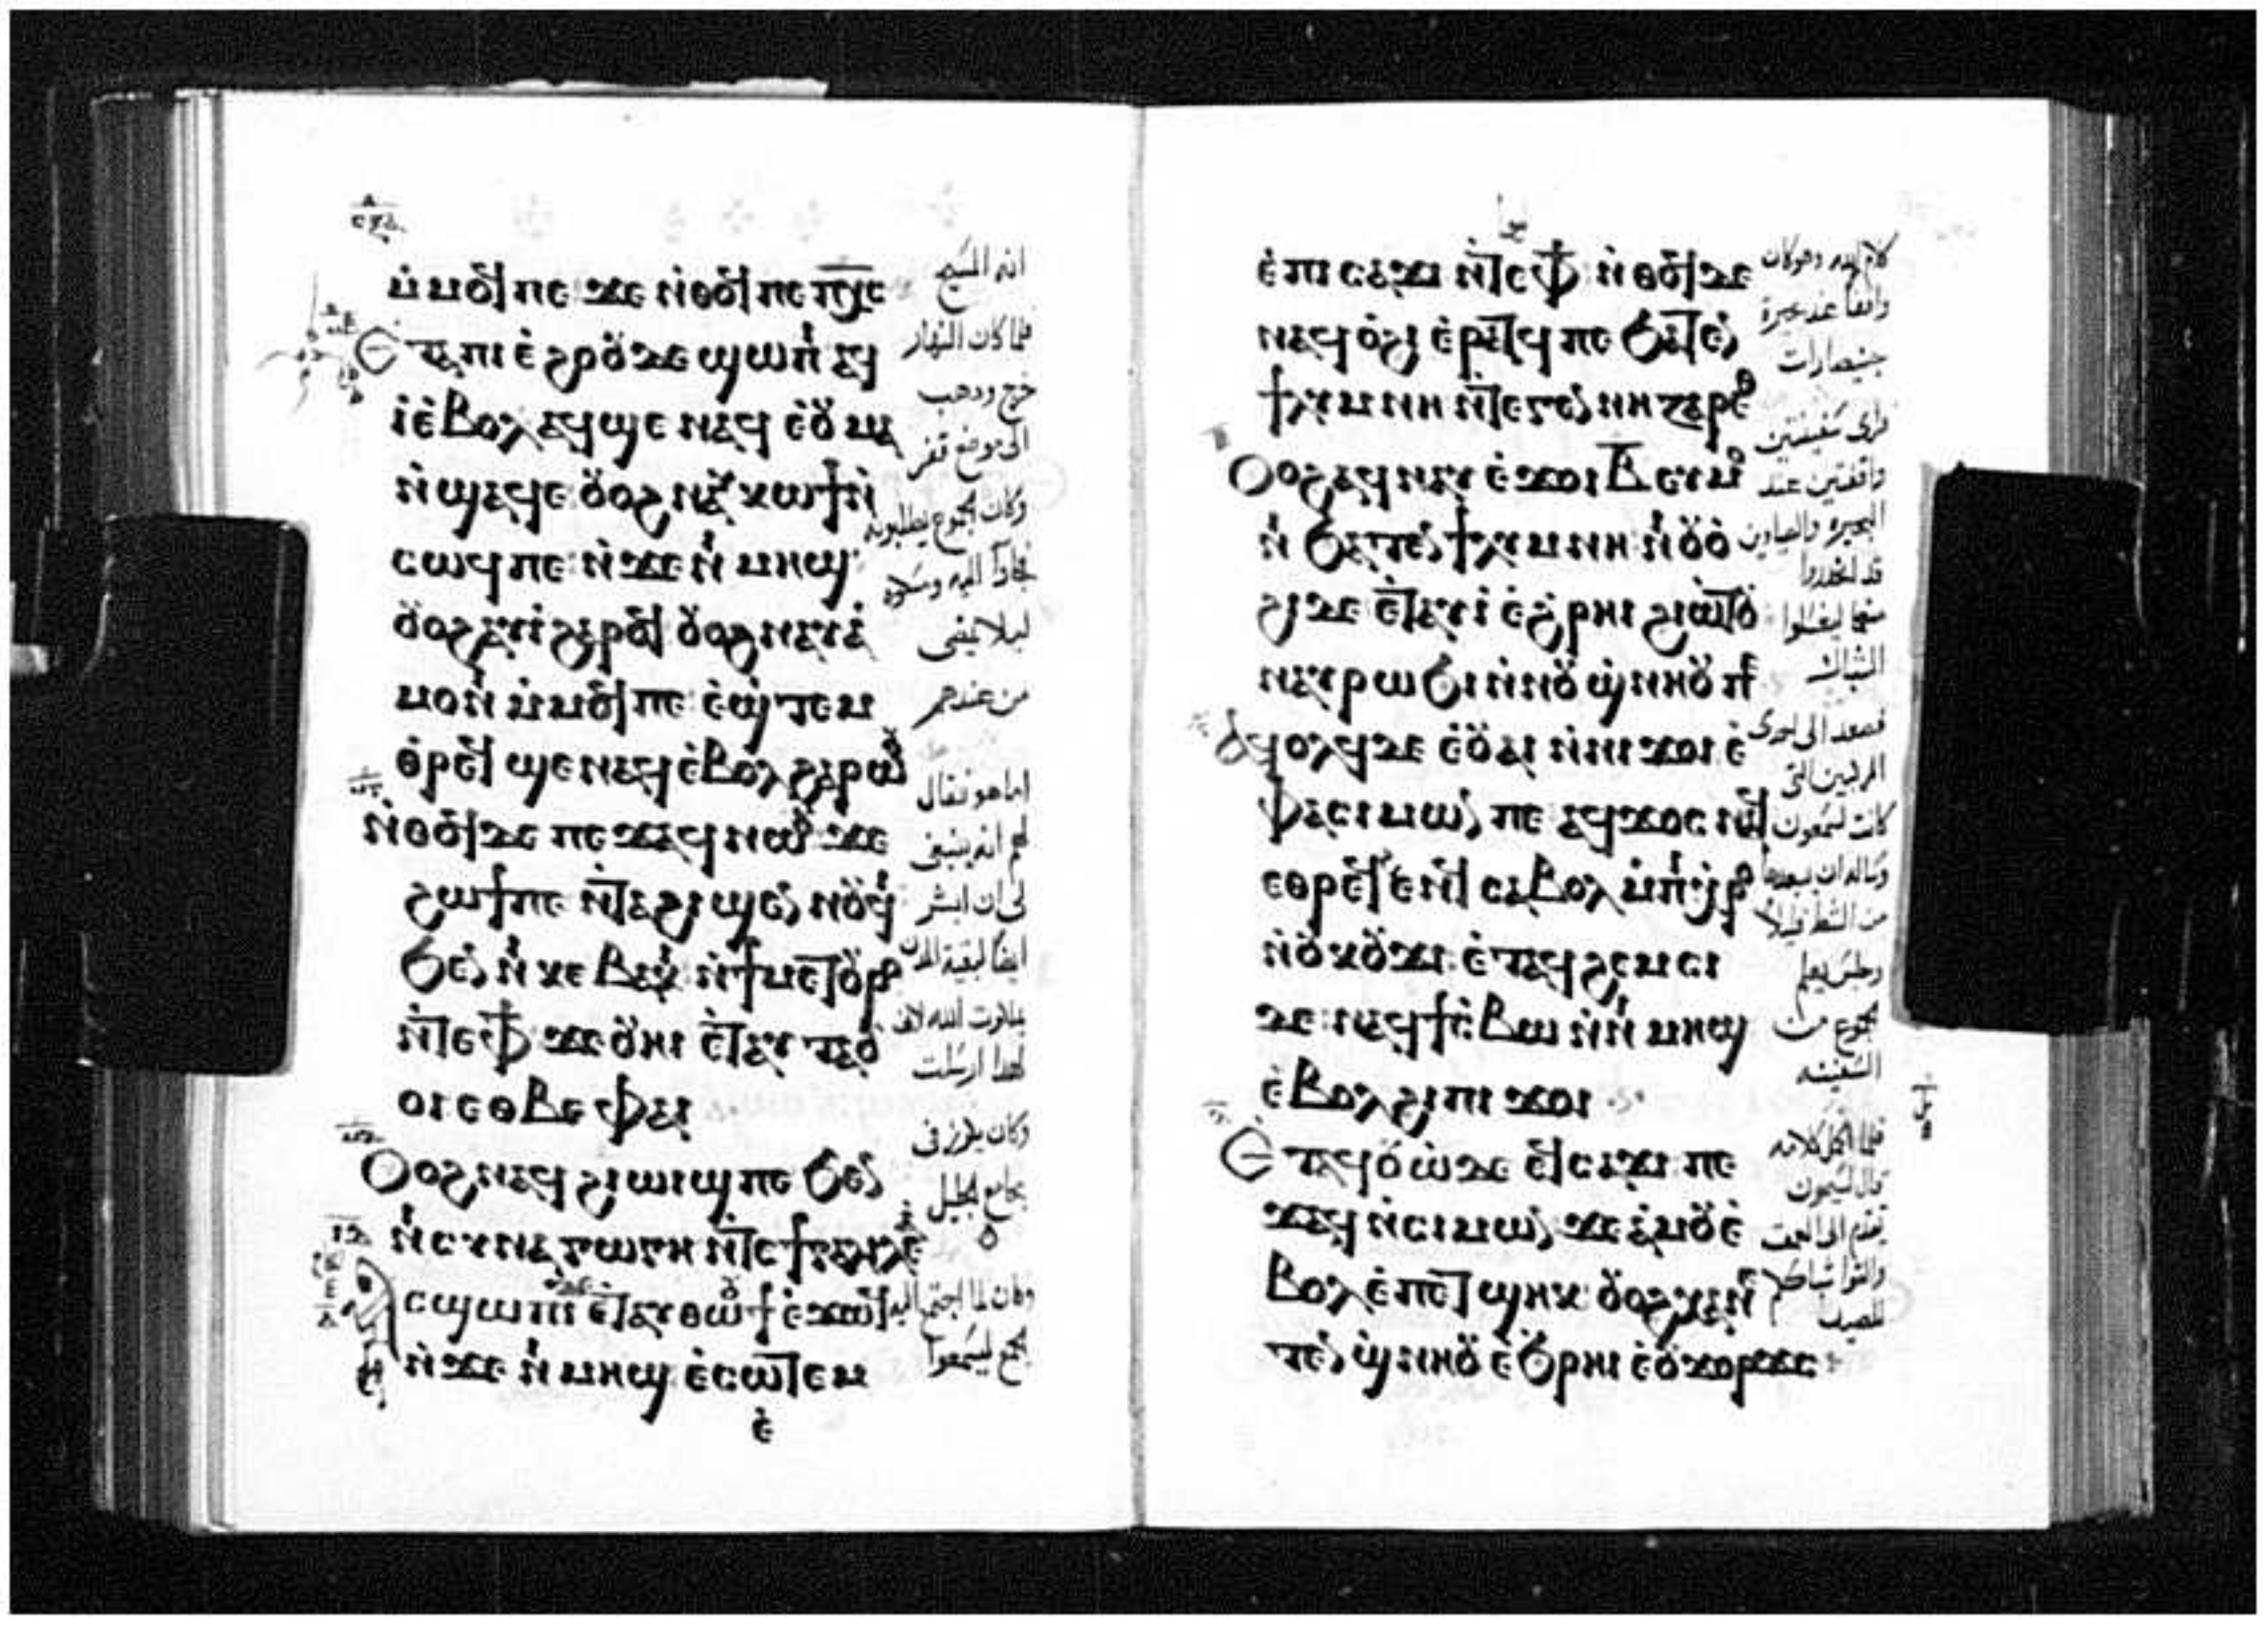 ⲙ̀ⲙⲟϥ ⲡⲉ ϫⲉ ⲛ̀ⲑⲟϥ ⲡⲉ ⲡⲭ̅ⲥ
Ⲉⲧⲁ ⲡⲓⲉ̀ϩⲟⲟⲩ ⲇⲉ ϣⲱⲡⲓ ⲁϥ
ⲓ̀ ⲉ̀ⲃⲟⲗ ⲁϥϣⲉ ⲛⲁϥ ⲉ̀ⲟⲩⲙⲁ
ⲛ̀ϣⲁϥⲉ ⲟⲩⲟϩ ⲛⲁⲩⲕⲱϯ ⲛ̀
ⲥⲱϥ ⲡⲉ ⲛ̀ϫⲉ ⲛⲓⲙⲏϣ
ⲟⲩⲟϩ ⲁⲩⲓ̀ ϩⲁⲣⲟϥ ⲟⲩⲟϩ ⲛⲁⲩⲁ̀
ⲙⲟⲛⲓ ⲙ̀ⲙⲟϥ ⲡⲉ ⲉ̀ϣⲧⲉⲙ
ⲑⲣⲉϥ ϣⲉ ⲛⲁϥ ⲉ̀ⲃⲟⲗ ϩⲁⲣⲱⲟⲩ
ⲛ̀ⲑⲟϥ ⲇⲉ ⲡⲉϫⲁϥ ⲛⲱⲟⲩ ϫⲉ
ϩⲱϯ ⲡⲉ ⲛ̀ⲧⲁϩⲓϣⲉⲛⲛⲟⲩϥⲓ
ϧⲉⲛ ⲛⲓⲕⲉⲃⲁⲕⲓ ⲛ̀ϯⲙⲉⲧⲟⲩⲣⲟ
ⲛ̀ⲧⲉ ⲫϯ ϫⲉ ⲟⲩⲏⲓ ⲉ̀ⲧⲁⲩⲧⲁⲟⲩ
ⲟⲓ ⲉⲑⲃⲉ ⲫⲁⲓ
Ⲟⲩⲟϩ ⲛⲁϥϩⲓⲱⲓϣ ⲡⲉ ϧⲉⲛ
ⲛⲓⲥⲩⲛⲁⲅⲱⲅⲏ ⲛ̀ⲧⲉ ϯⲅⲁⲗⲓⲗⲉⲁ
ⲁⲥϣⲱⲡⲓ ⲇⲉ ⲉ̀ⲧⲁⲩⲑⲱⲟⲩϯ ⲉ̀ϫⲱϥ
ⲛ̀ϫⲉ ⲛⲓⲙⲏϣ ⲉ̀ⲥⲱⲧⲉⲙ
ⲉ̀
انه المسيح
فلما كان النهار
خرج وذهب
الى موضع قفر
وكان الجموع يطلبونه
فجاوا اليه ومسكوه
ليلا يمضى
من عندهم
اما هو فقال
لهم انه ينبغى
لى ان ابشر
ايضا لبقية المدن
بملكوت الله لانى
لهذا ارسلت
وكان يكرز فى
مجامع الجليل
وكان لما اجتمع اليه
الجمع ليسمعوا
ⲉ̀ⲡⲓⲥⲁϫⲓ ⲛ̀ⲧⲉ ⲫϯ ⲛ̀ⲑⲟϥ ⲇⲉ
ⲛⲁϥⲟ̀ϩⲓ ⲉ̀ⲣⲁⲧϥ ⲡⲉ ϧⲁⲧⲉⲛ
ϯⲗⲩⲙⲛⲏ ⲛ̀ⲧⲉ ⲅⲉⲛⲛⲏⲥⲁⲣⲉⲑ
Ⲟⲩⲟϩ ⲁϥⲛⲁⲩ ⲉ̀ϫⲟⲓ ⲃ̅ ⲉⲩⲙⲟ
ⲛⲓ ϧⲁⲧⲉⲛ ϯⲗⲩⲙⲛⲏ ⲛⲓⲟⲩⲟ̀
ϩⲓ ⲇⲉ ⲉ̀ⲧⲁⲩⲓ̀ ⲉ̀ϩⲣⲏⲓ ϩⲓⲱⲧⲟⲩ
ⲛⲁⲩⲣⲱϧⲓ ⲛ̀ⲛⲟⲩϣⲛⲏⲟⲩ ⲡⲉ
Ⲁϥⲟⲗϥ ⲇⲉ ⲉ̀ⲟⲩⲁⲓ ⲛ̀ⲛⲓϫⲟⲓ ⲉ̀
ⲫⲁ ⲥⲓⲙⲱⲛ ⲡⲉ ⲁϥϫⲟⲥ ⲛⲁϥ
ⲉⲑⲣⲉϥⲉⲛϥ ⲥⲁⲃⲟⲗ ⲙ̀ⲡⲓⲭⲣⲟ
ⲛ̀ⲟⲩⲕⲟⲩϫⲓ ⲉ̀ⲧⲁϥϩⲉⲙⲥⲓ
ⲇⲉ ⲛⲁϥϯⲥⲃⲱ ⲛ̀ⲛⲓⲙⲏϣ
ⲉ̀ⲃⲟⲗ ϩⲓ ⲡⲓϫⲟⲓ
Ⲉ̀ⲧⲁϥⲟⲩⲱ̀ ⲇⲉ ⲉϥⲥⲁϫⲓ ⲡⲉ
ϫⲁϥ ⲛ̀ⲥⲓⲙⲱⲛ ϫⲉ ⲁ̀ⲙⲟⲩ ⲉ̀
ⲃⲟⲗ ⲉ̀ⲡⲉⲧϣⲏⲕ ⲟⲩⲟϩ ⲭⲁ ⲛⲉ
ⲧⲉⲛϣⲛⲏⲟⲩ ⲉ̀ϧⲣⲏⲓ ⲉ̀ⲟⲩϫⲟⲣϫⲥ
كلام الله وهو كان
واقفا عند بحيرة
جنيصارات
فراى سفينتين
واقفتين عند
البحيرة والصيادين
قد انحدروا
منها ليغسلوا
الشباك
فصعد الى احدى
المركبين التى
كانت لسمعون
وساله ان يبعدها
من الشط قليلا
وجلس يعلم
الجموع من
السفينه
فلما اكمل كلامه
قال لسمعون
تقدم الى العمق
والقوا شباككم
للصيد